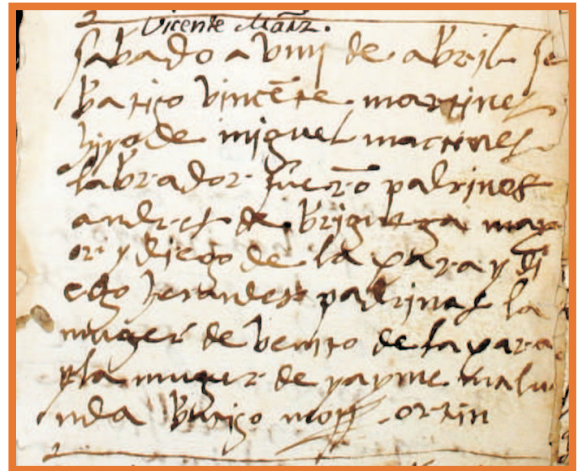 Vicente Martz.
sabado a viiij de abril se
batizo vincēte martines
hijo de miguel martines
labrador fuerō padrinos
andres de briguega may
or y diego de la xara y di
ego herandes padrinas la
muger de benito de la xara
y la muger de yayme malu
nda batizo mosen ortin